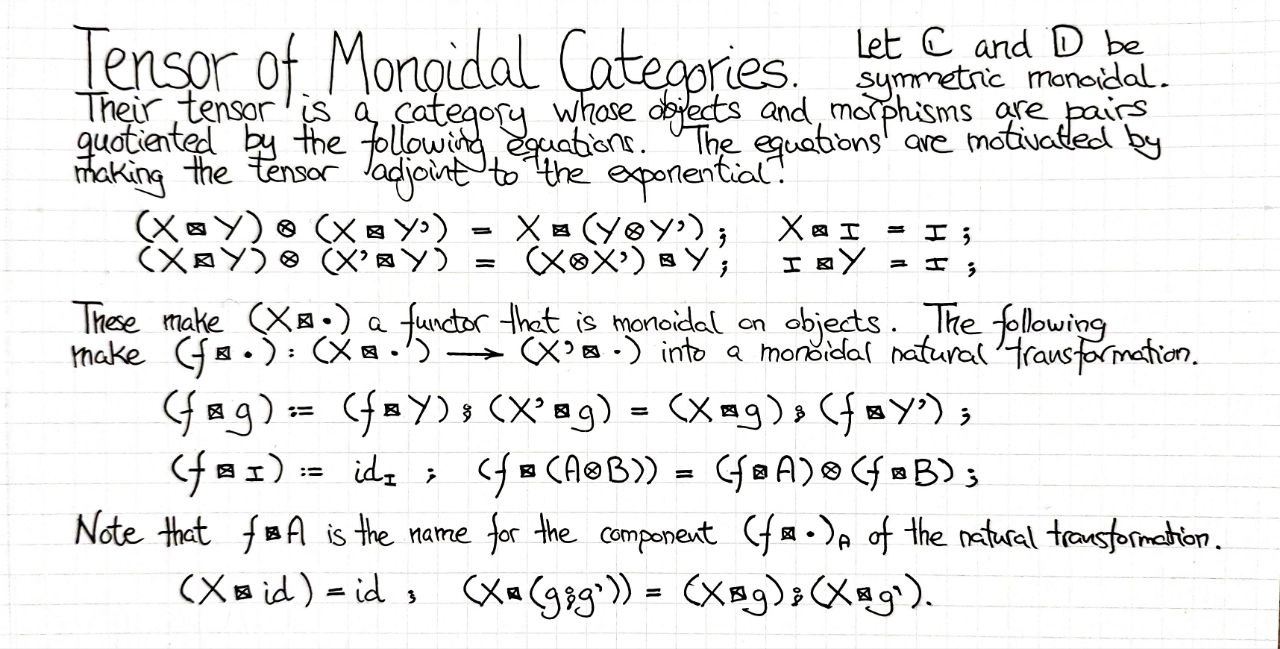 Tensor of Monoidal Categories. Let ℂ and 𝔻 be
symmetric monoidal.
Their tensor is a category whose objects and morphisms are pairs
quotiented by the following equations. The equations are motivated by
making the tensor adjoint to the exponential.
(X ⊠ Y) ⊗ (X ⊠ Y') = X ⊠ (Y ⊗ Y') ; X ⊠ I = I ;
(X ⊠ Y) ⊗ (X' ⊠ Y) = (X ⊗ X') ⊠ Y ; I ⊠ Y = I ;
These make (X ⊠ •) a functor that is monoidal on objects. The following
make (f ⊠ •) : (X ⊠ •) ⟶ (X' ⊠ •) into a monoidal natural transformation.
(f ⊠ g) := (f ⊠ Y) ⨾ (X' ⊠ g) = (X ⊠ g) ⨾ (f ⊠ Y') ;
(f ⊠ I) := id_I ; (f ⊠ (A ⊗ B)) = (f ⊠ A) ⊗ (f ⊠ B) ;
Note that f ⊠ A is the name for the component (f ⊠ •)_A of the natural transformation.
(X ⊠ id) = id ; (X ⊠ (g ⨾ g')) = (X ⊠ g) ⨾ (X ⊠ g').